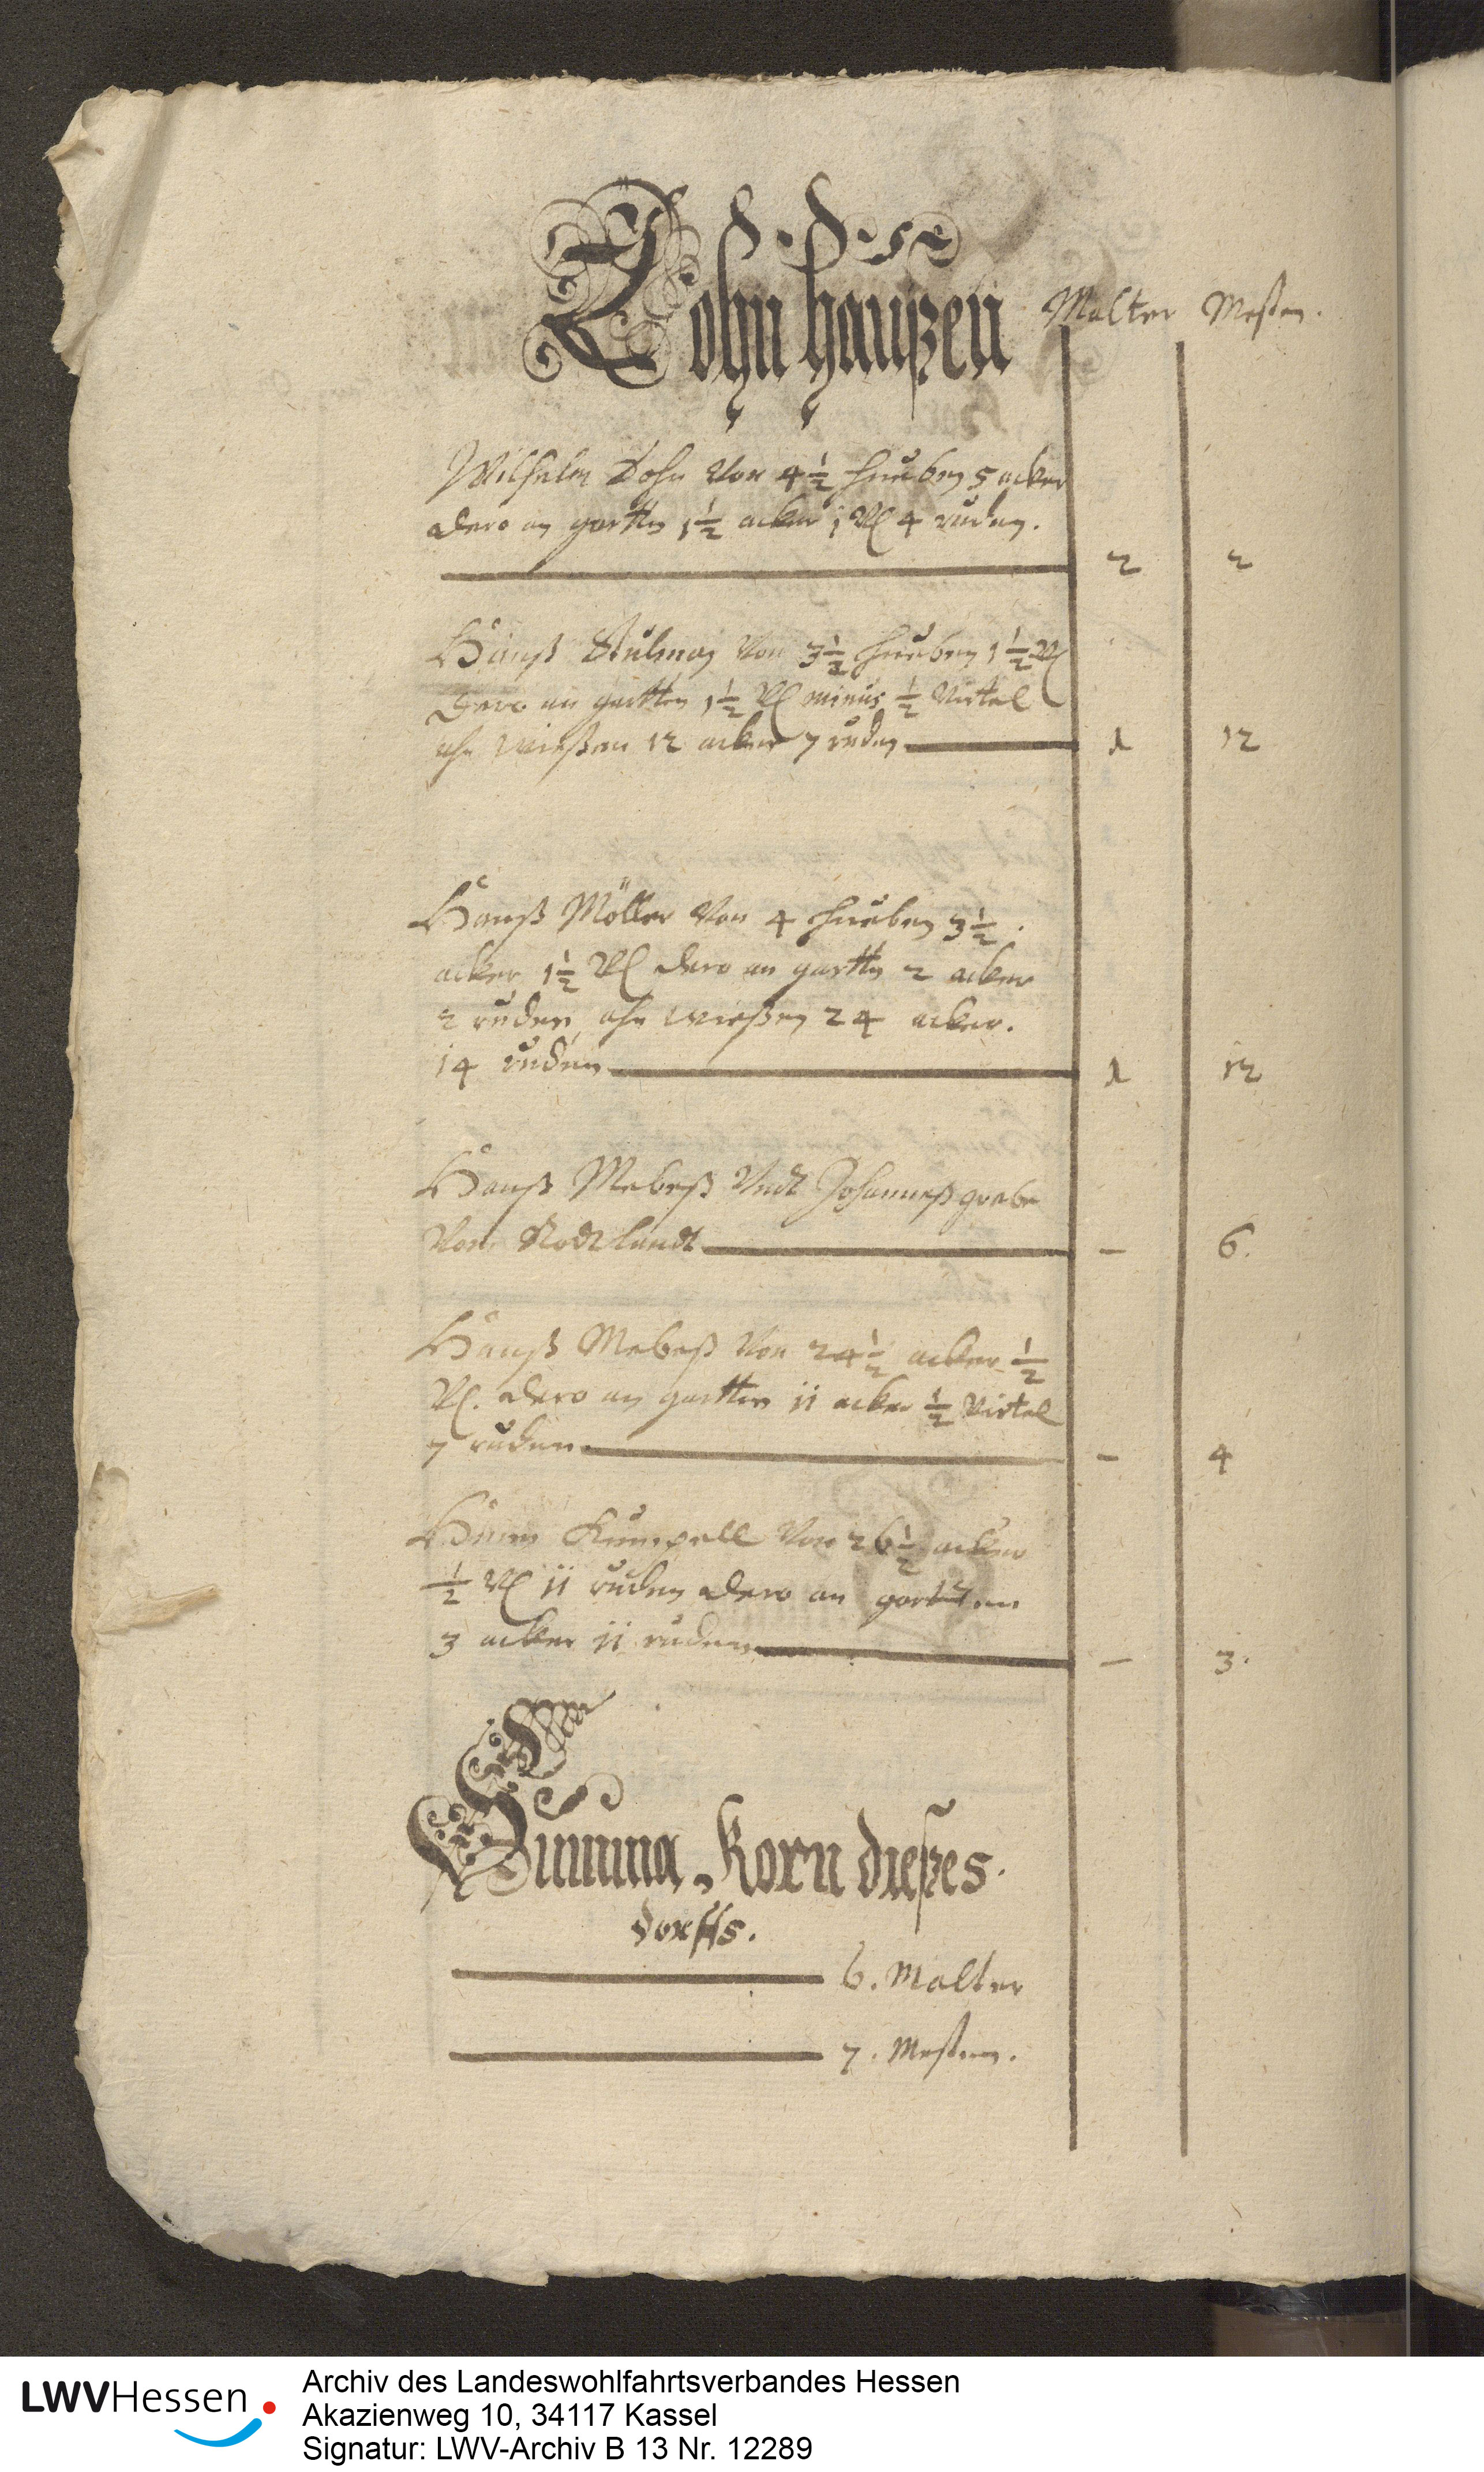 Dohnhaußen
Malter Meßen.
Wilhelm Dohn Von 4 1/2 hueben 5 acker
dero an gartten 1 1/2 acker 1 Vl 4 ruden.
2 2
Hanß Von 3 1/2 hueben 1 1/2 Vl
dero an gartten 1 1/2 Vl minus 1/2 Virtel
ahn Wießen 12 acker 7 ruden 1 12
Hanß Möller Von 4 hueben 3 1/2
acker 1 1/2 Vl dero an gartten 2 acker
2 ruden ahn Wießen 24 acker.
14 ruden 1 12
Hanß Mebeß Undt Johanneß grebe
Von Rodtlandt - 6.
Hanß Mebeß Von 24 1/2 acker 1/2
Vl. dero an gartten 11 acker 1/2 Virtel
7 ruden - 4
Kumpell Von 26 1/2 acker
1/2 Vl 11 ruden dero an gartten
3 acker 11 ruden - 3.
Summa Korn dießes.
dorffs.
6. Malter
7. Meßen.
LWVHessen
Archiv des Landeswohlfahrtsverbandes Hessen
Akazienweg 10, 34117 Kassel
Signatur: LWV-Archiv B 13 Nr. 12289